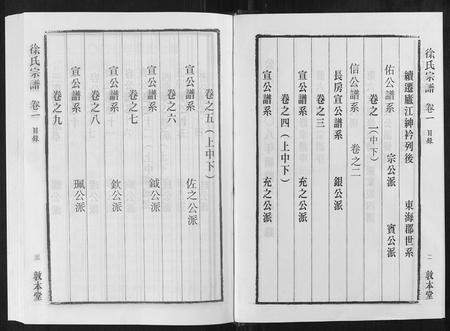 徐氏宗譜 卷一 目錄
二 敦本堂
續遷廬江紳衿列後 東海郡世系
佑公譜系 宗公派 賓公派
卷之二(中下)
信公譜系 卷之二
長房宣公譜系 銀公派
卷之三
宣公譜系 充之公派
卷之四(上中下)
宣公譜系 充之公派
卷之五(上中下)
宣公譜系 佐之公派
卷之六
宣公譜系 鉞公派
卷之七
宣公譜系 欽公派
卷之八
宣公譜系 珮公派
卷之九
徐氏宗譜 卷一 目錄
敦本堂